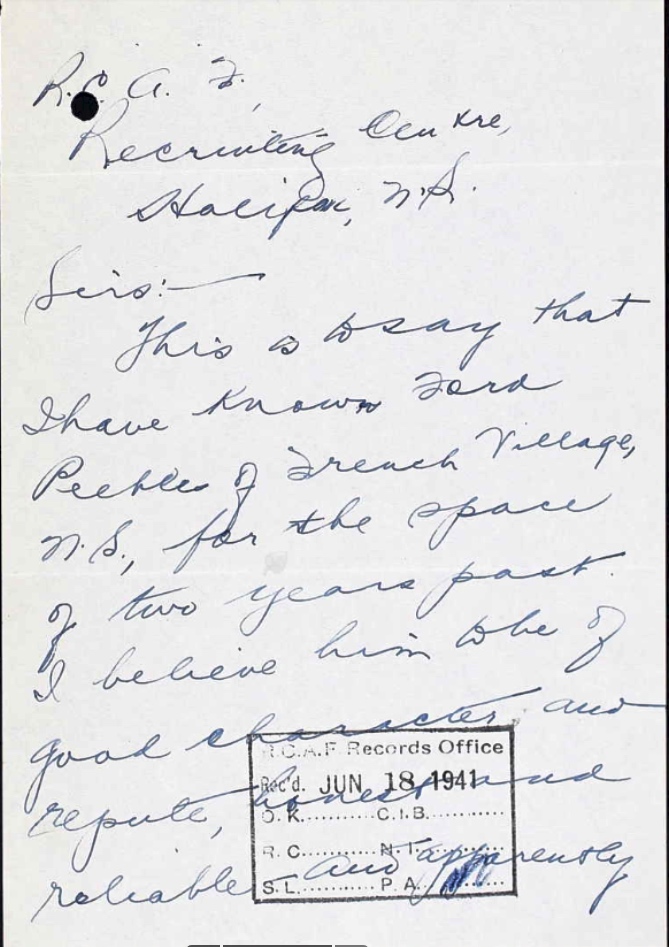 R.C.A.F.,
Recruiting Centre,
Halifax, N.S.
Sirs:—
This is to say that
I have known Ford
Peebles of French Village,
N.S., for the space
of two years past.
I believe him to be of
good character and
repute, honest and
reliable and apparently
R.C.A.F. Records Office
Rec'd. JUN 18 1941
O.K. C.I.B.
R.C. N.I.
S.L. P.A.